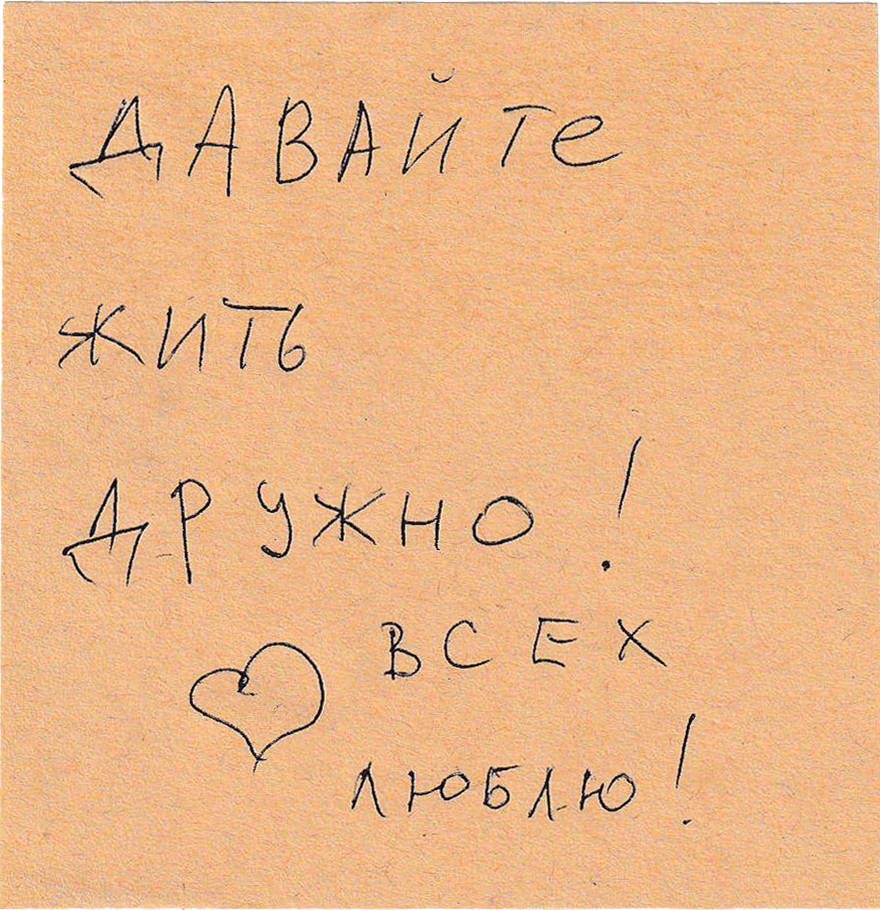 ДАВАЙТе
ЖИТЬ
ДРУЖНО!
ВСЕХ
ЛЮБЛЮ!